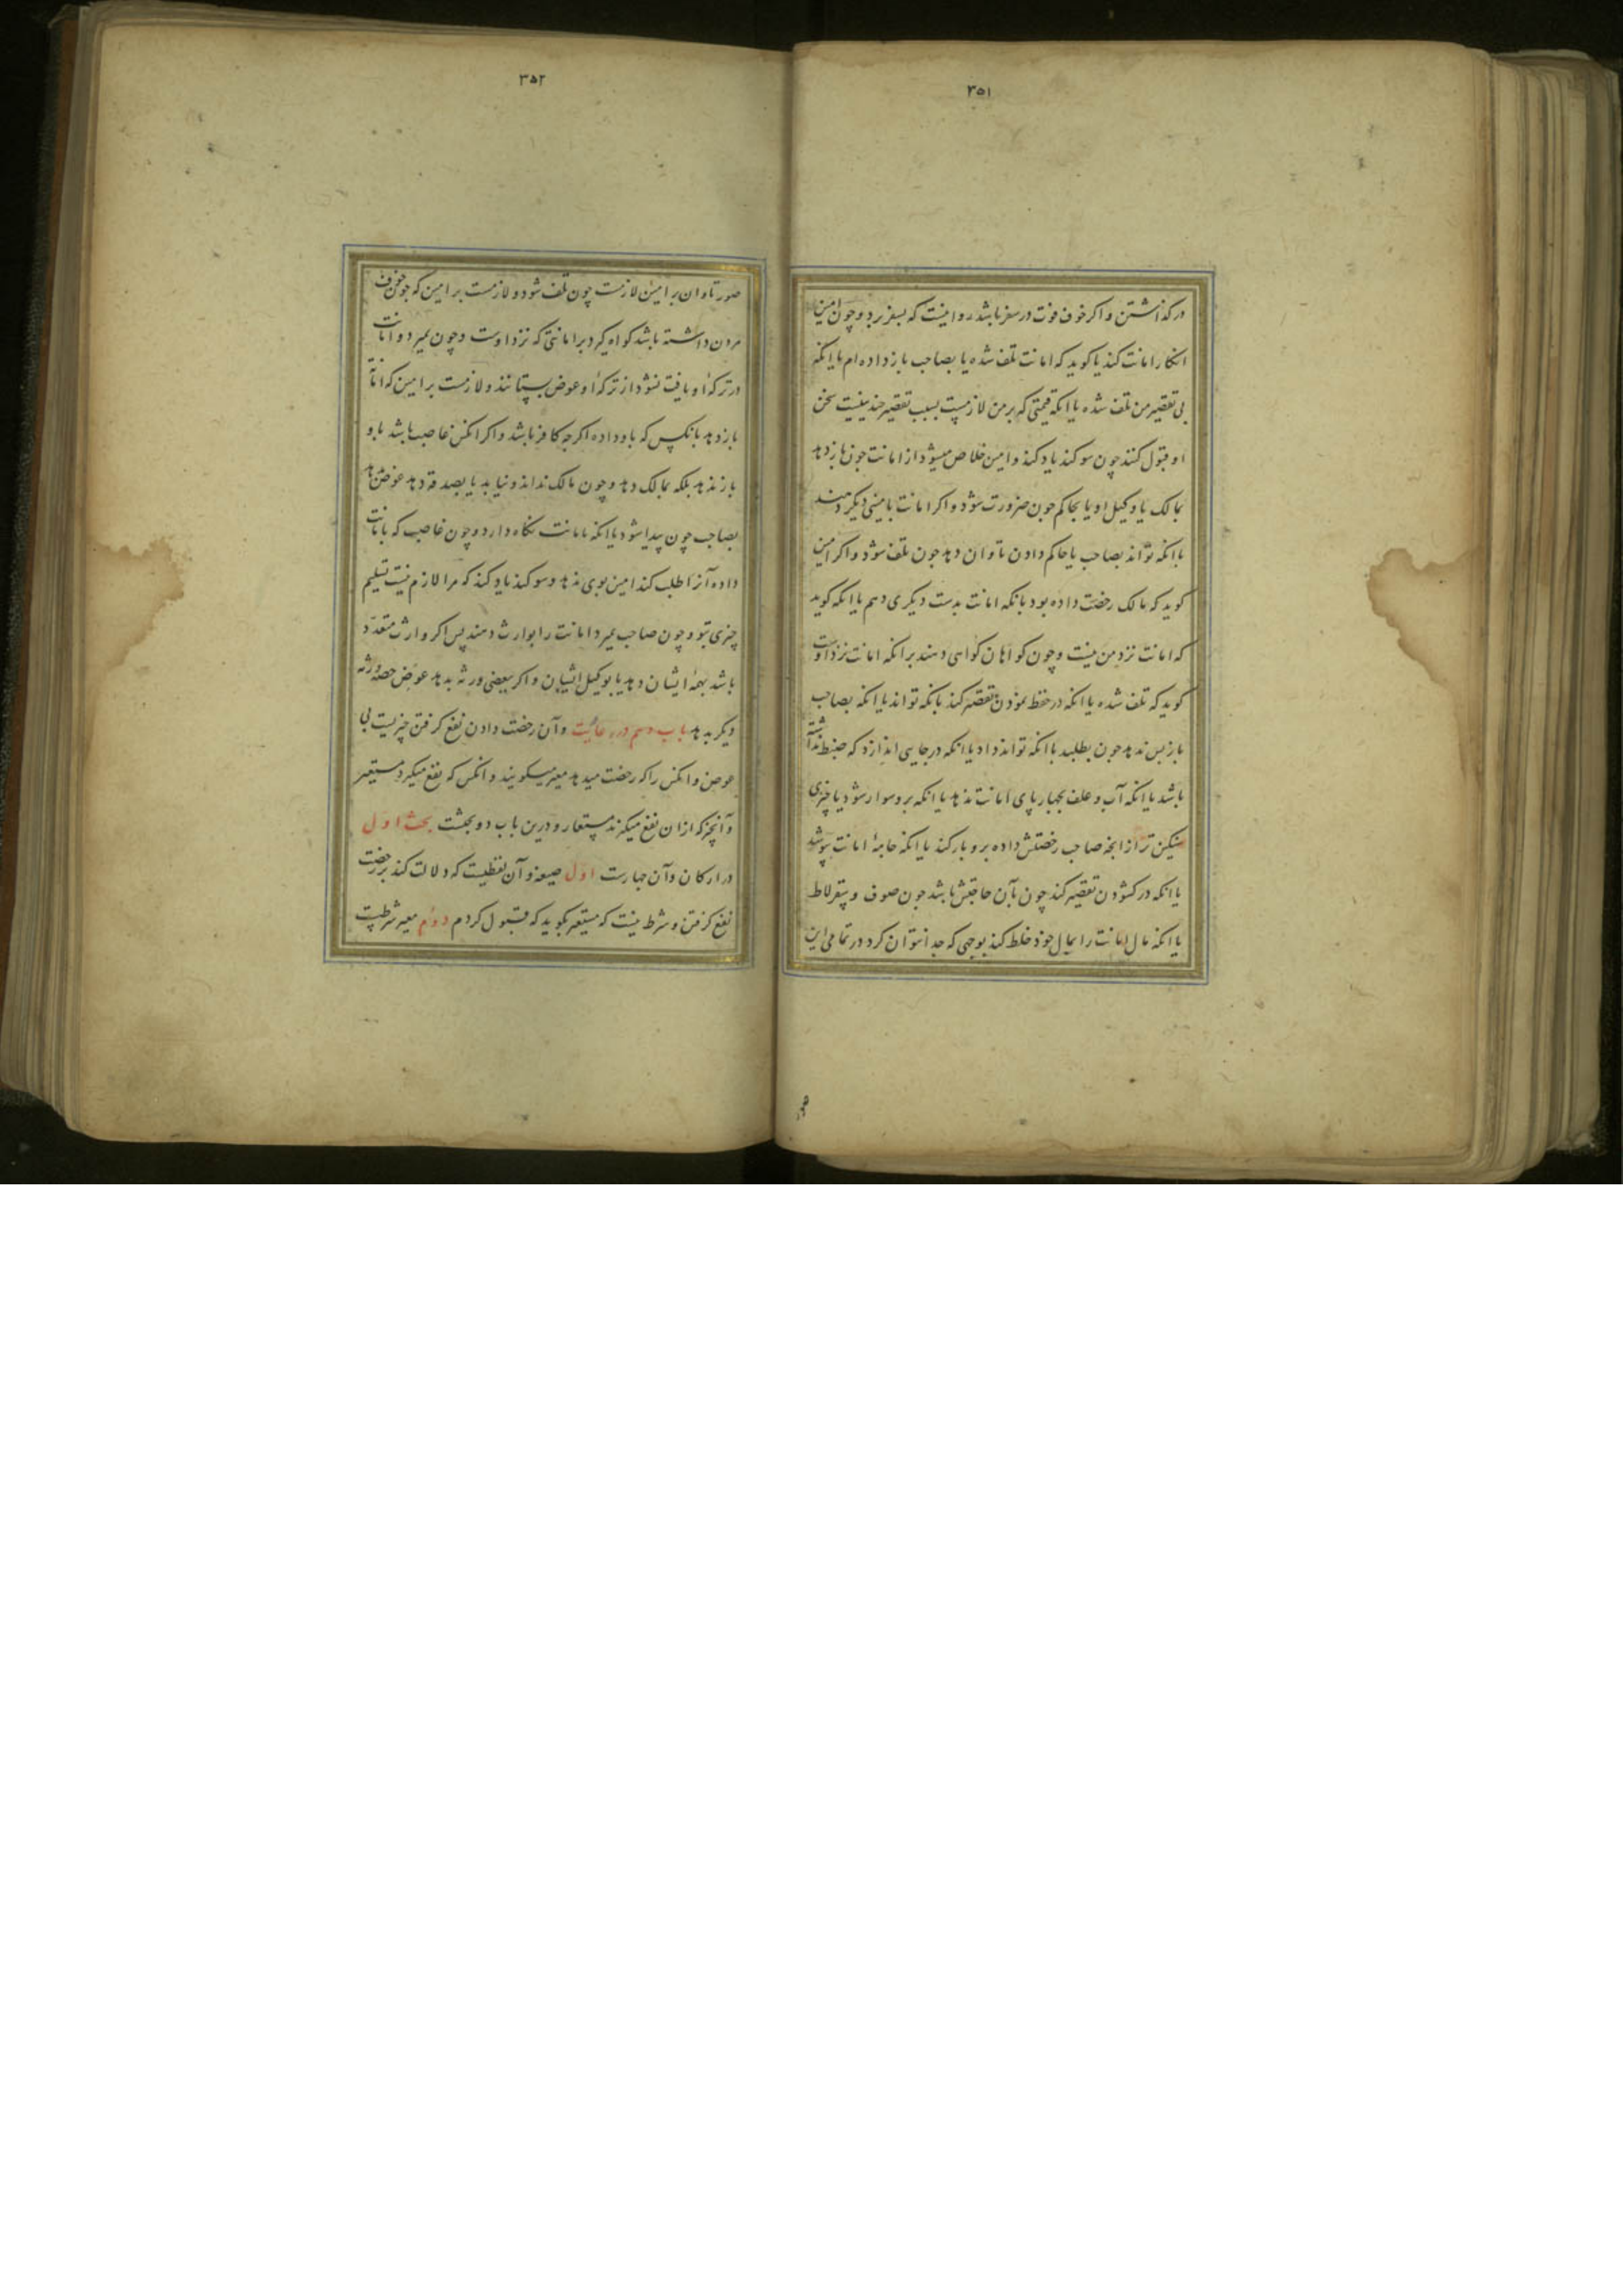 ۳۵۱
درگذاشتن و اگر خوف فوت در سفر باشد روا نیست که بسفر برد و چون امین
انکار امانت کند یا کوید که امانت تلف شده یا بصاحب باز داده ام یا انکه
بی تقصیر من تلف شده یا انکه قیمتی که بر من لازمست بسبب تقصیر چند نیست سخن
او قبول کنند چون سوکند یاد کند و امین خلاص میشود از امانت چون باز دهد
بمالک یا وکیل او یا بحاکم چون ضرورت شود و اکر امانت بامینی دیکر دهند
باانکه تواند بصاحب یا حاکم دادن تاوان دهد چون تلف شود و اکر امین
کوید که مالک رخصت داده بود بانکه امانت بدست دیکری دهم یا انکه کوید
که امانت نزد من نیست و چون کواهان کواهی دهند بر انکه امانت نزد اوست
کوید که تلف شده یا انکه در حفظ نمودن تقصیر کند بانکه تواند یا انکه بصاحب
بازپس ندهد چون بطلبد باانکه تواند داد یا انکه در جایی اندازد که ضبط نداشته
باشد یا انکه آب و علف بچهارپای امانت ندهد یا انکه برو سوار شود یا چیزی
سنکین تر از انچه صاحب رخصتش داده برو بار کند یا انکه جامهٔ امانت پوشد
یا انکه در کشودن تقصیر کند چون بآن حاجتش باشد چون صوف و سقرلاط
یا انکه مال امانت را بمال خود خلط کند بوجهی که جدا نتوان کرد در تمامی این
صور
۳۵۲
صور تاوان بر امین لازمست چون تلف شود و لازمست بر امین که چون خوف
مردن داشته باشد کواه کیرد بر امانتی که نزد اوست و چون بمیرد و امانت
در ترکهٔ او یافت نشود از ترکهٔ او عوض بستانند و لازمست بر امین که امانت
باز دهد بانکس که باو داده اکرچه کافر باشد و اکر انکس غاصب باشد باو
باز ندهد بلکه بمالک دهد و چون مالک نداند و نیابد یا بصدقه دهد عوض دهد
بصاحب چون پیدا شود یا انکه بامانت نکاه دارد و چون غاصب که بامانت
داده آنرا طلب کند امین بوی ندهد و سوکند یاد کند که مرا لازم نیست تسلیم
چیزی بتو و چون صاحب بمیرد امانت را بوارث دهند پس اکر وارث متعدد
باشد بهمهٔ ایشان دهد یا بوکیل ایشان و اکر ببعضی ورثه بدهد عوض حصهٔ ورثه
دیکر بدهد باب دهم در عاریت و آن رخصت دادن نفع کرفتن چیزیست بی
عوض و انکس را که رخصت میدهد معیر میکویند و انکس که نفع میکیرد مستعیر
و آنچه که ازان نفع میکیرند مستعار و درین باب دو بحثست بحث اول
در ارکان و آن چهارست اول صیغه و آن لفظیست که دلالت کند بر رخصت
نفع کرفتن و شرط نیست که مستعیر بکوید که قبول کردم دوم معیر شرطست